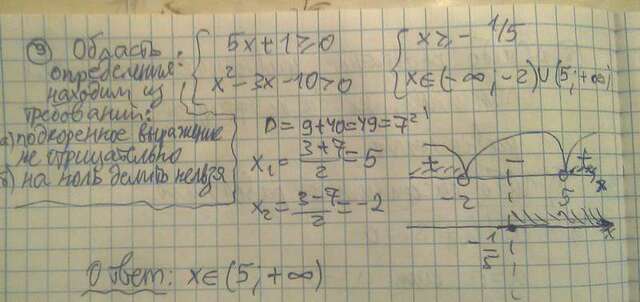 9) Область определения находим из требований:
а) подкоренное выражение не отрицательно
б) на ноль делить нельзя
{ 5x+1≥0
x²-3x-10>0
{ x≥-1/5
x∈(-∞;-2)∪(5;+∞)
D=9+40=49=7²
x₁=(3+7)/2=5
x₂=(3-7)/2=-2
+ - +
-2 5 x
-1/5 x
Ответ: x∈(5;+∞)